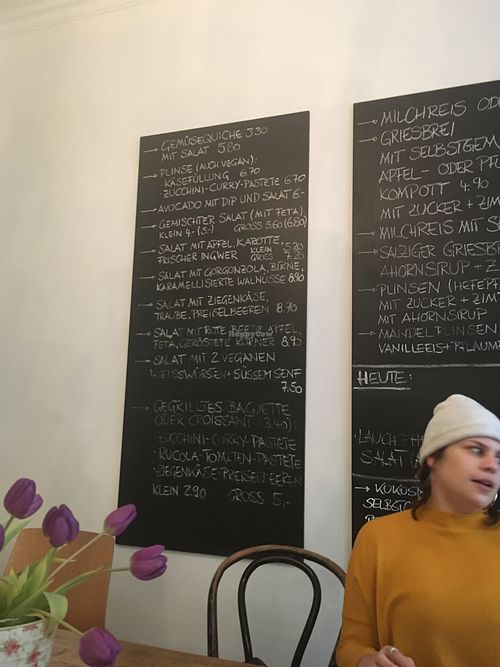 → GEMÜSEQUICHE 3.30
MIT SALAT 5.80
→ PLINSE (AUCH VEGAN):
· KÄSEFÜLLUNG 6.70
· ZUCCHINI-CURRY-PASTETE 6.70
→ AVOCADO MIT DIP UND SALAT 6.-
→ GEMISCHTER SALAT (MIT FETA),
KLEIN 4.- (5.-) GROSS 5.60 (6.80)
→ SALAT MIT APFEL, KAROTTE,
FRISCHER INGWER KLEIN 5.20
GROSS 7.20
→ SALAT MIT GORGONZOLA, BIRNE,
KARAMELLISIERTE WALNÜSSE 8.90
→ SALAT MIT ZIEGENKÄSE,
TRAUBE, PREISELBEEREN 8.70
→ SALAT MIT ROTE BEETE, APFEL,
FETA, GERÖSTETE KÖRNER 8.90
→ SALAT MIT 2 VEGANEN
WEISSWÜRSTEN + SÜSSEM SENF
7.50
→ GEGRILLTES BAGUETTE
ODER CROISSANT (3.40):
· ZUCCHINI-CURRY-PASTETE
· RUCOLA-TOMATEN-PASTETE
· ZIEGENKÄSE-PREISELBEEREN
KLEIN 2.90 GROSS 5,-
HappyCow
→ MILCHREIS OD
→ GRIESBREI
MIT SELBSTGEM
APFEL- ODER PFL
KOMPOTT 4.90
MIT ZUCKER + ZIM
→ MILCHREIS MIT S
→ SALZIGER GRIESBR
AHORNSIRUP + Z
→ PLINSEN (HEFEPF
MIT ZUCKER + ZIMT
MIT AHORNSIRUP
→ MANDELPLINSEN
VANILLEEIS + PFLAUM
HEUTE:
· LAUCH-
SALAT
→ KOKOSM
SELBST